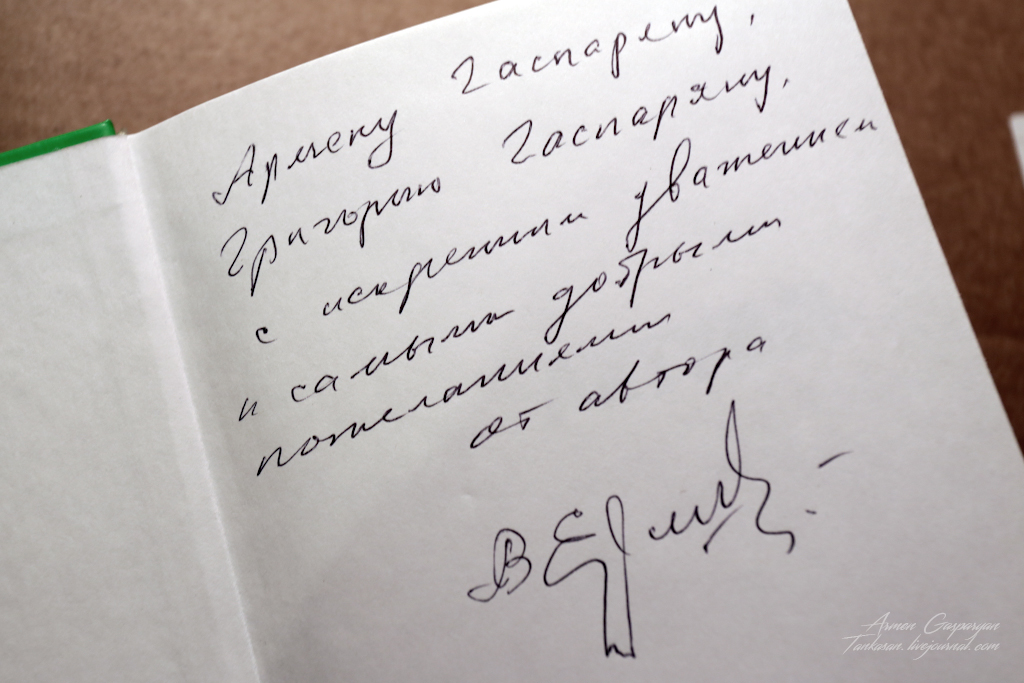 Армену Гаспаряну,
Григорию Гаспаряну,
с искренним уважением
и самыми добрыми
пожеланиями
от автора
Armen Gasparyan
Tankaran.livejournal.com